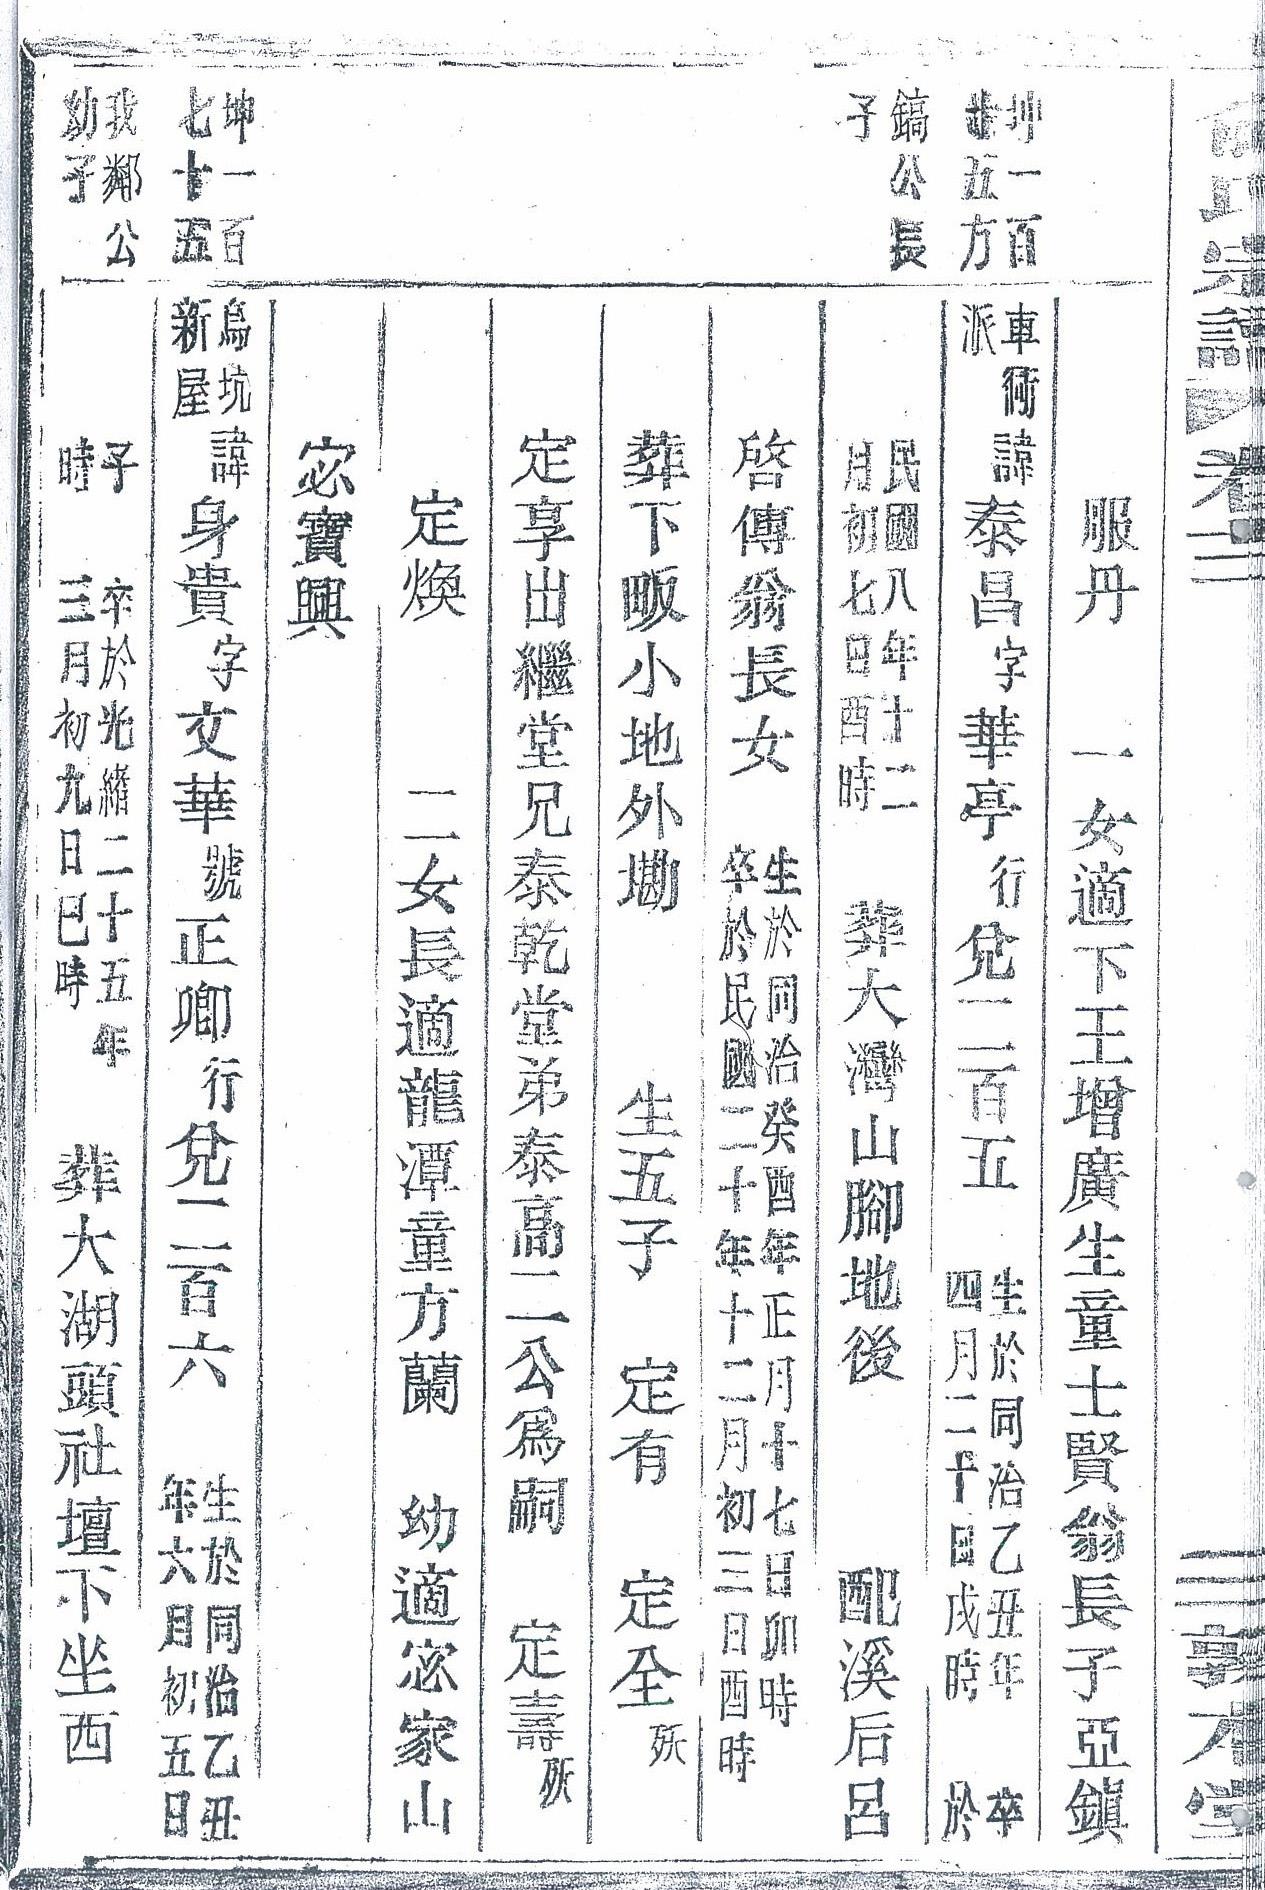 俞氏宗譜 卷二 三 敦本堂
服丹 一女適下王增廣生童士賢翁長子亞鎮
坤一百
廿五方
鎬公長
子
車衕
派
諱泰昌字華亭行兌一二百五 生於同治乙丑年
四月二十日戌時 卒
於
民國八年十二
月初七日酉時 葬大灣山腳地後 配溪后呂
啓傳翁長女 生於同治癸酉年正月十七日卯時
卒於民國二十年十二月初三日酉時
葬下畈小地外墈 生五子 定有 定全殀
定享出繼堂兄泰乾堂弟泰高二公爲嗣 定壽殀
定煥 二女長適龍潭童方蘭 幼適宓家山
宓寶興
坤一百
七十五
我鄰公
幼子
烏坑
新屋
諱身貴字文華號正卿行兌一二百六 生於同治乙丑
年六月初五日
子
時 卒於光緒二十五年
三月初九日巳時 葬大湖頭社壇下坐西